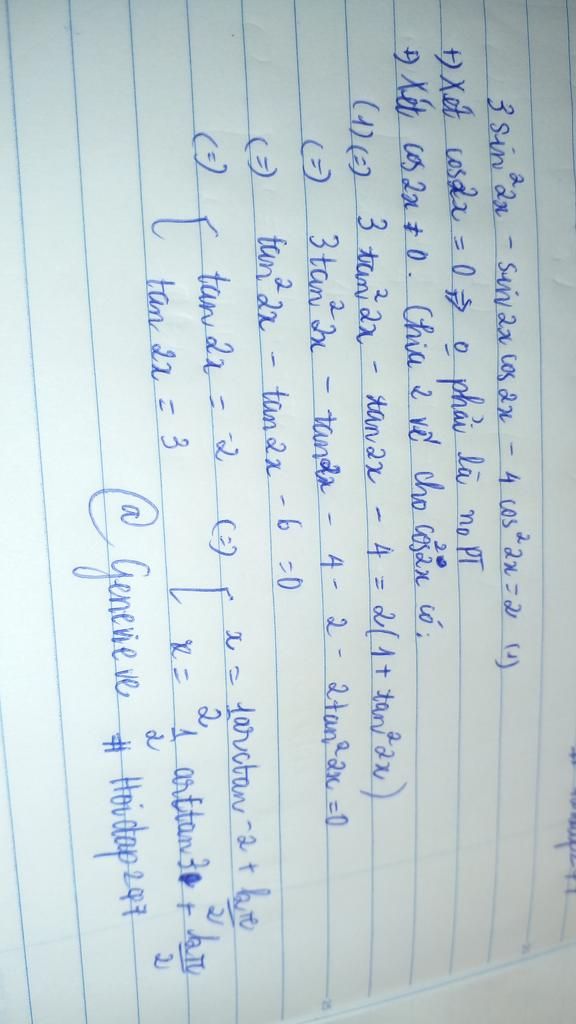 3 sin²2x - sin2x cos2x - 4 cos²2x = 2 (1)
+) Xét cos2x = 0 => o phải là no PT
+) Xét cos2x ≠ 0. Chia 2 vế cho cos²2x có:
(1) (=) 3 tan²2x - tan2x - 4 = 2(1 + tan²2x)
(=) 3tan²2x - tan2x - 4 - 2 - 2tan²2x = 0
(=) tan²2x - tan2x - 6 = 0
(=) [ tan2x = -2 (=) [ x = 1/2 arctan -2 + kπ/2
tan 2x = 3 x = 1/2 arctan3 + kπ/2
@ Genenieve # Hoidap247